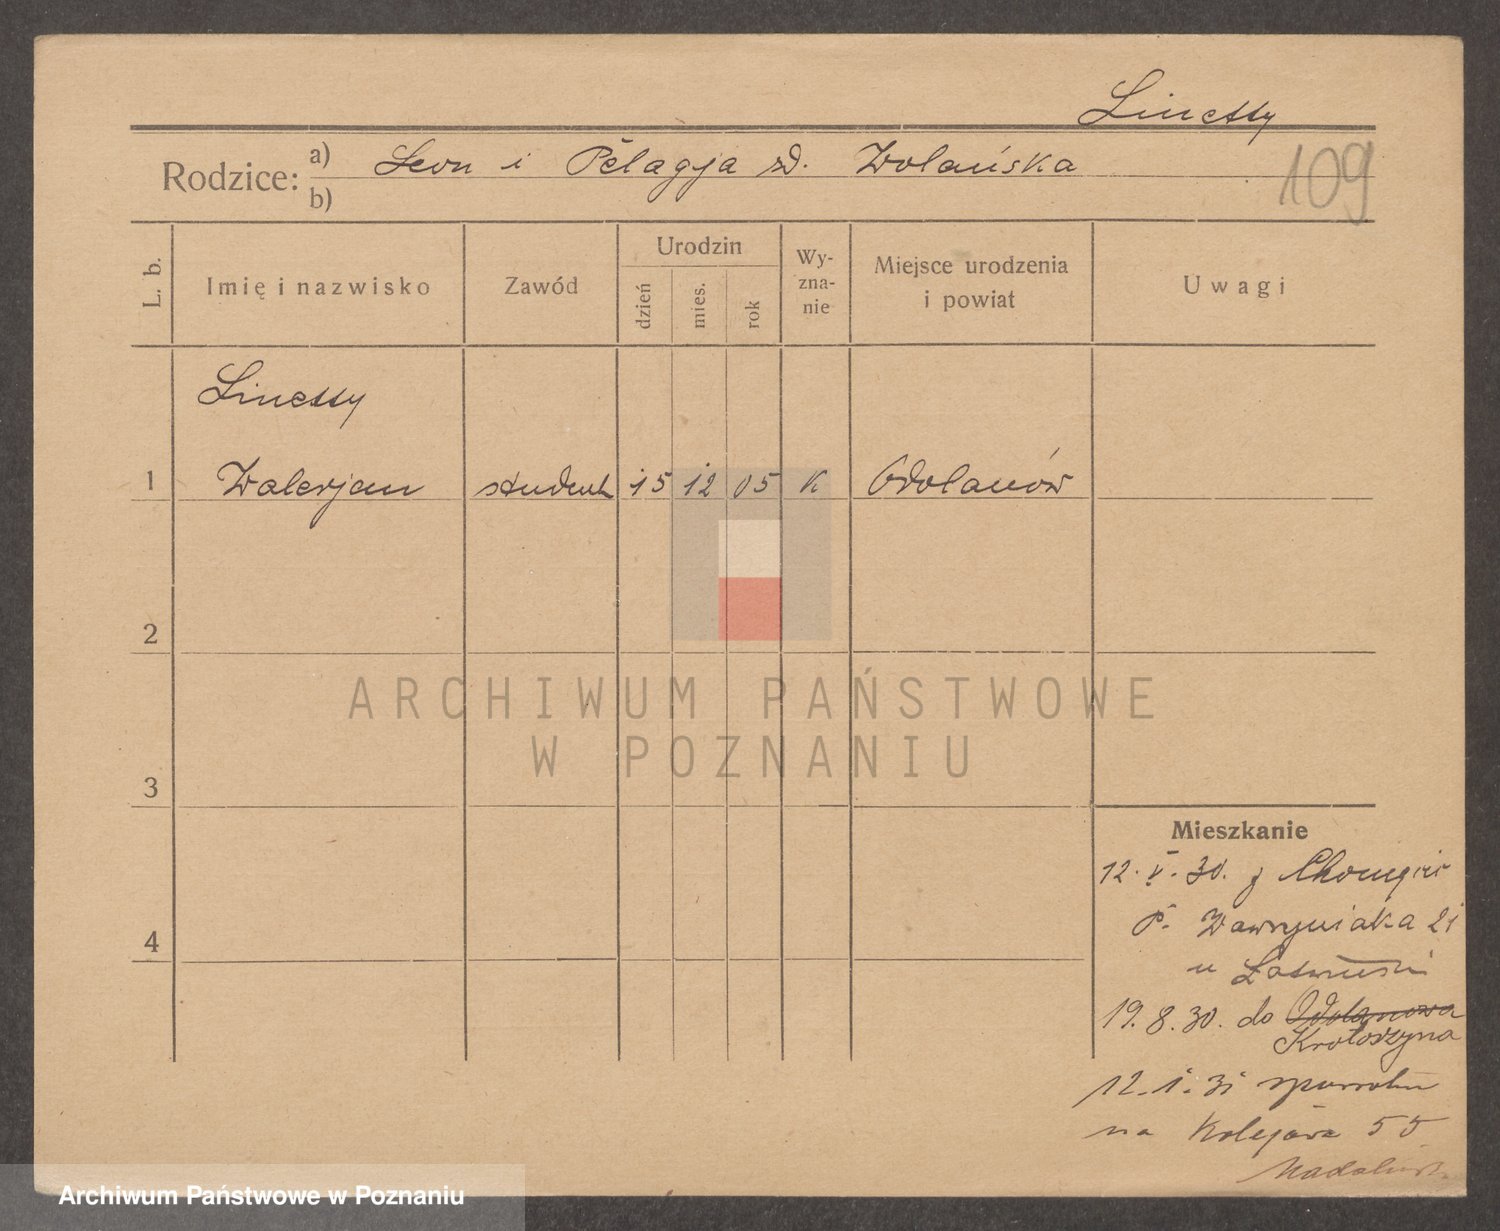 Linetty
Rodzice:
a) Leon i Pelagja zd. Wolańska
b)
109
L. b.
Imię i nazwisko
Zawód
Urodzin
dzień
mies.
rok
Wy-
zna-
nie
Miejsce urodzenia
i powiat
Uwagi
Linetty
1 Walerjan student 15 12 05 K Odolanów
2
3
4
ARCHIWUM PAŃSTWOWE
W POZNANIU
Mieszkanie
12. V. 30. z
P. Wawrzyniaka 21
u
19. 8. 30. do Odolanowa
Krotoszyna
12. 1. 31
na Kolejowa 55
Archiwum Państwowe w Poznaniu